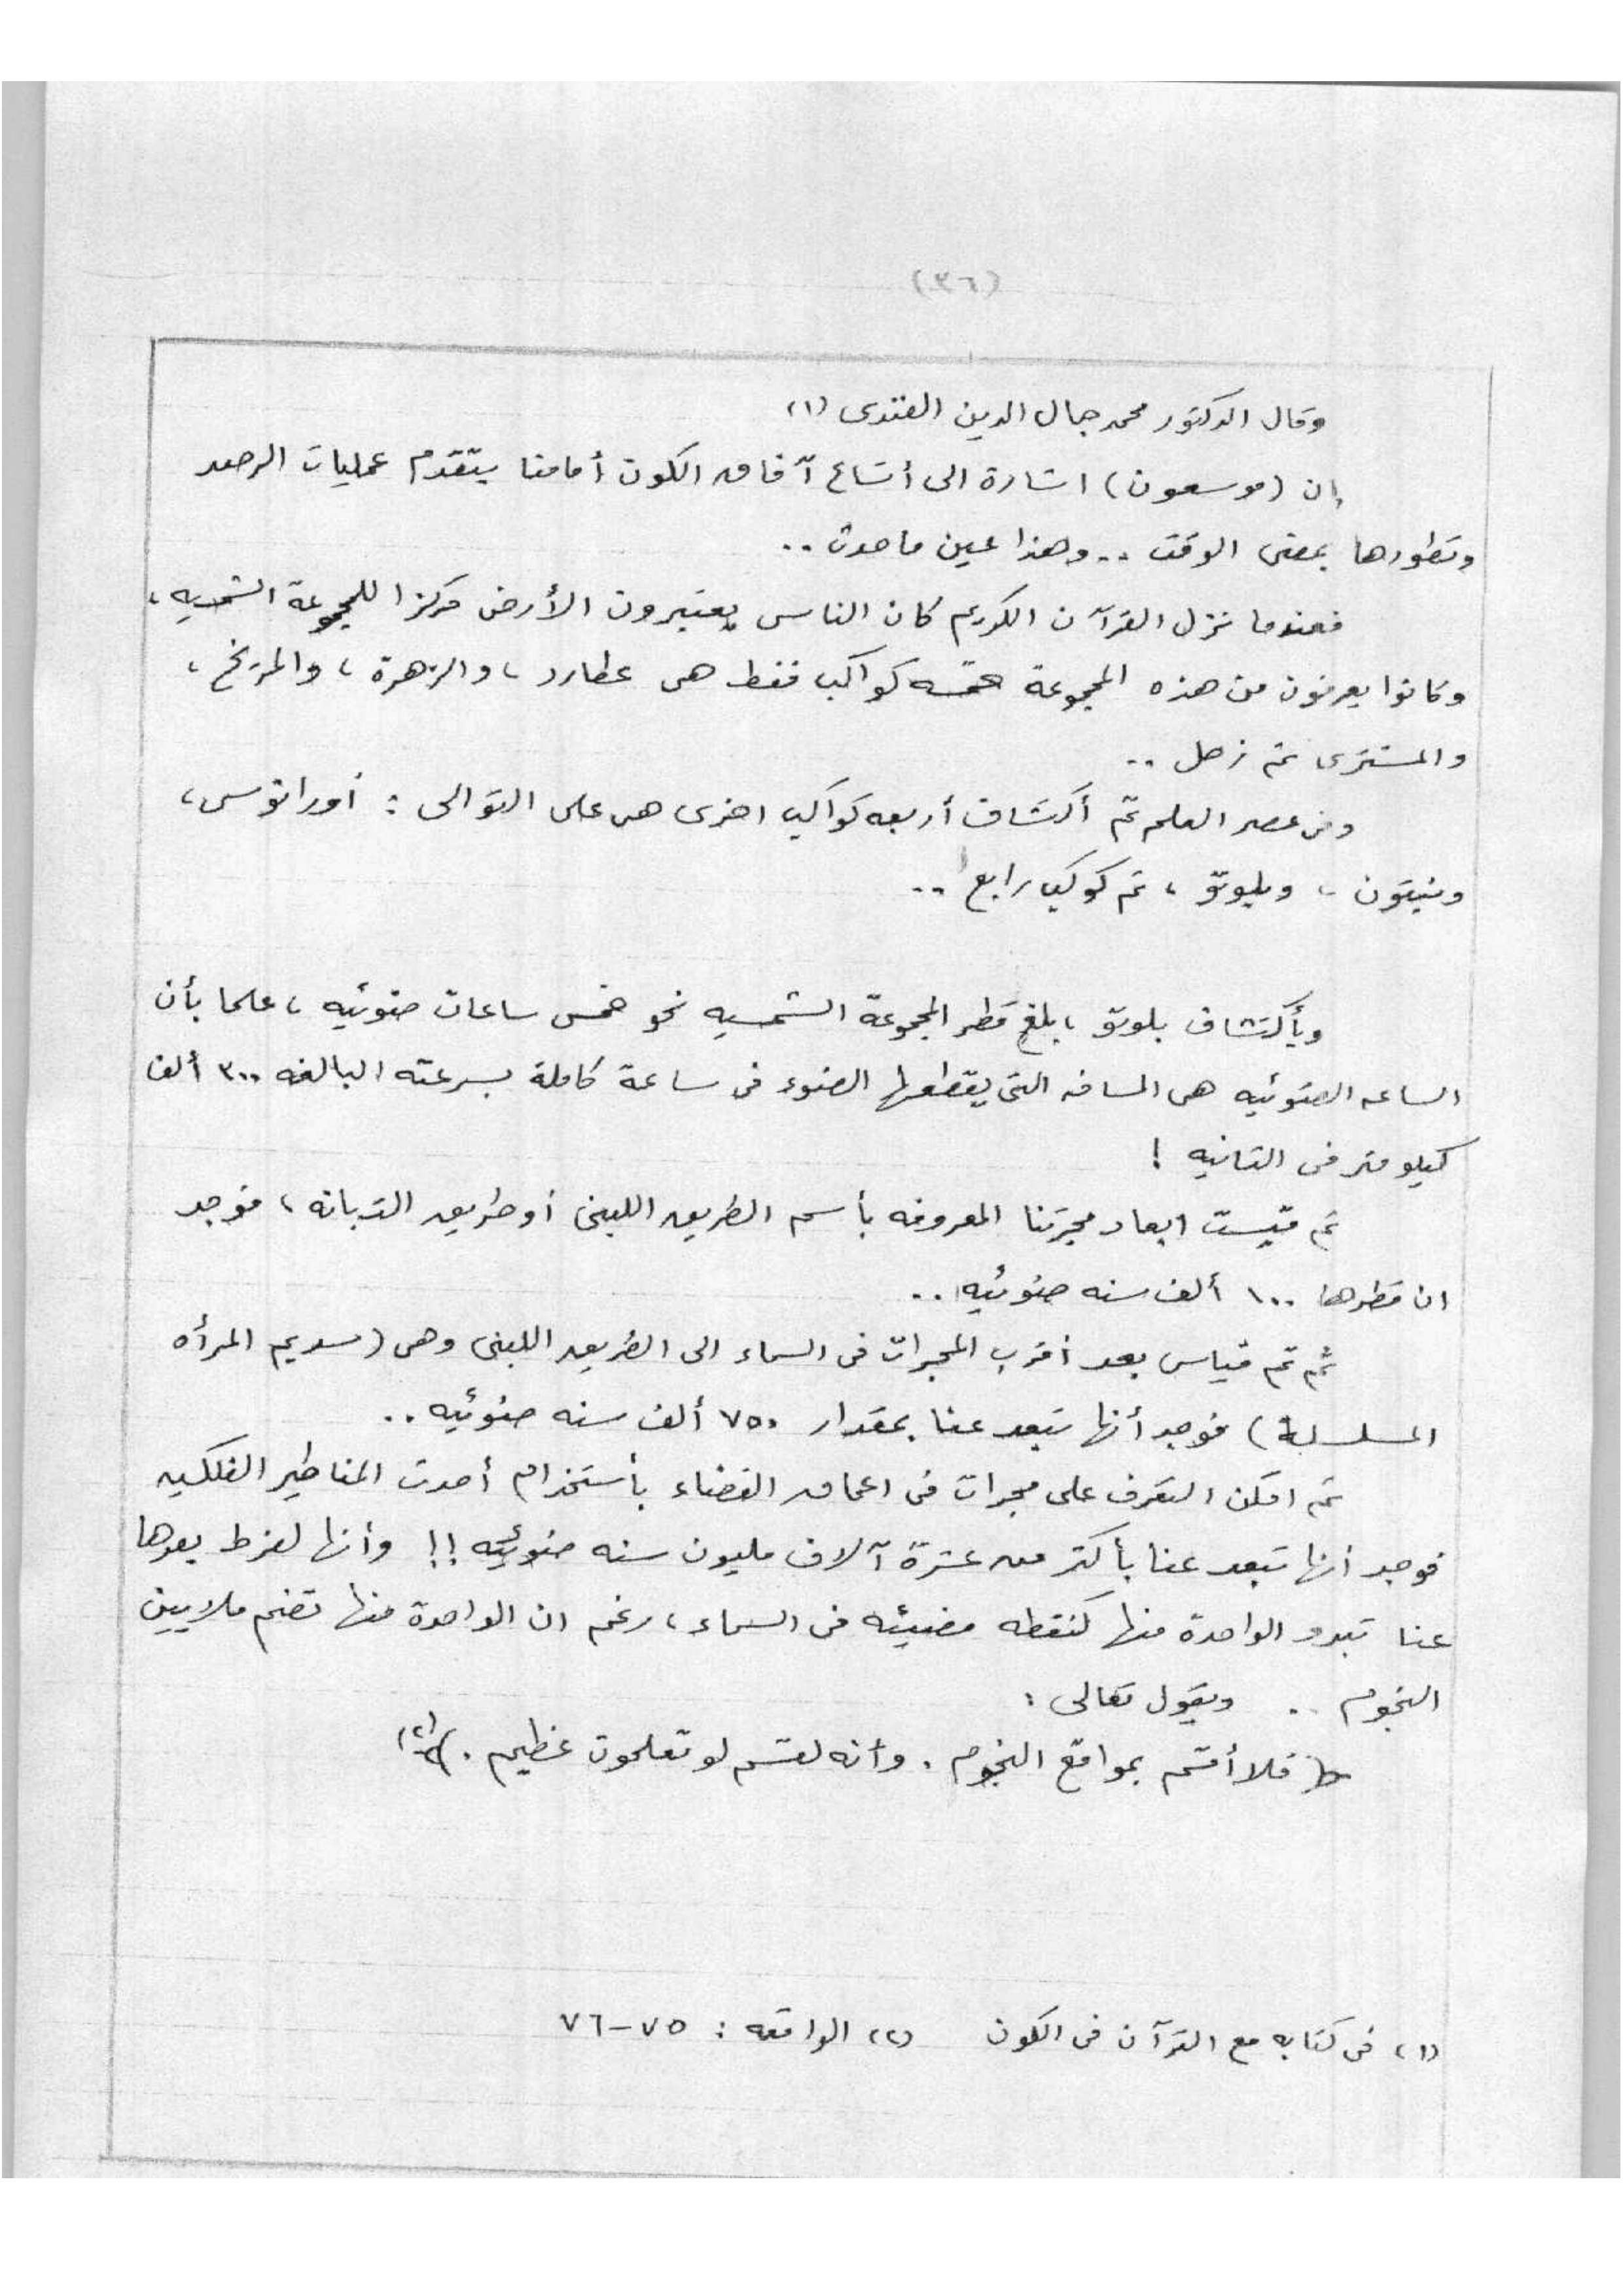 (٣٦)
وقال الدكتور محمد جمال الدين الفندى (١)
إن (موسعون) اشارة الى أتساع آفاق الكون أمامنا بتقدم عمليات الرصد
وتطورها بمضى الوقت .. وهذا عين ما حدث ..
فعندما نزل القرآن الكريم كان الناس يعتبرون الأرض مركزا للمجموعة الشمسيه ،
وكانوا يعرفون من هذه المجموعة خمسه كواكب فقط هى عطارد ، والزهرة ، والمريخ ،
والمشترى ثم زحل ..
وفى عصر العلم تم أكتشاف أربعه كواكب اخرى هى على التوالى : أورانوس ،
ونيتون ، وبلوتو ، ثم كوكب رابع ..
وبأكتشاف بلوتو ، بلغ قطر المجموعة الشمسيه نحو خمس ساعات ضوئيه ، علما بأن
الساعه الضوئيه هى المسافه التى يقطعها الضوء فى ساعة كاملة بسرعته البالغه ٣٠٠ ألف
كيلو متر فى الثانيه !
ثم قيست ابعاد مجرتنا المعروفه بأسم الطريق اللبنى أو طريق التبانه ، فوجد
ان قطرها ١٠٠ ألف سنه ضوئيه ..
ثم تم قياس بعد أقرب المجرات فى السماء الى الطريق اللبنى وهى (سديم المرأه
المسلسلة) فوجد أنها تبعد عنا بمقدار ٧٥٠ ألف سنه ضوئيه ..
ثم امكن التعرف على مجرات فى اعماق الفضاء بأستخدام أحدث المناظير الفلكيه
فوجد أنها تبعد عنا بأكثر من عشرة آلاف مليون سنه ضوئيه !! وأنها لفرط بعدها
عنا تبدو الواحدة منها كنقطه مضيئه فى السماء ، رغم ان الواحدة منها تضم ملايين
النجوم .. ويقول تعالى :
﴿ فلا أقسم بمواقع النجوم . وأنه لقسم لو تعلمون عظيم . ﴾ (٢)
(١) فى كتابه مع القرآن فى الكون (٢) الواقعه : ٧٥-٧٦